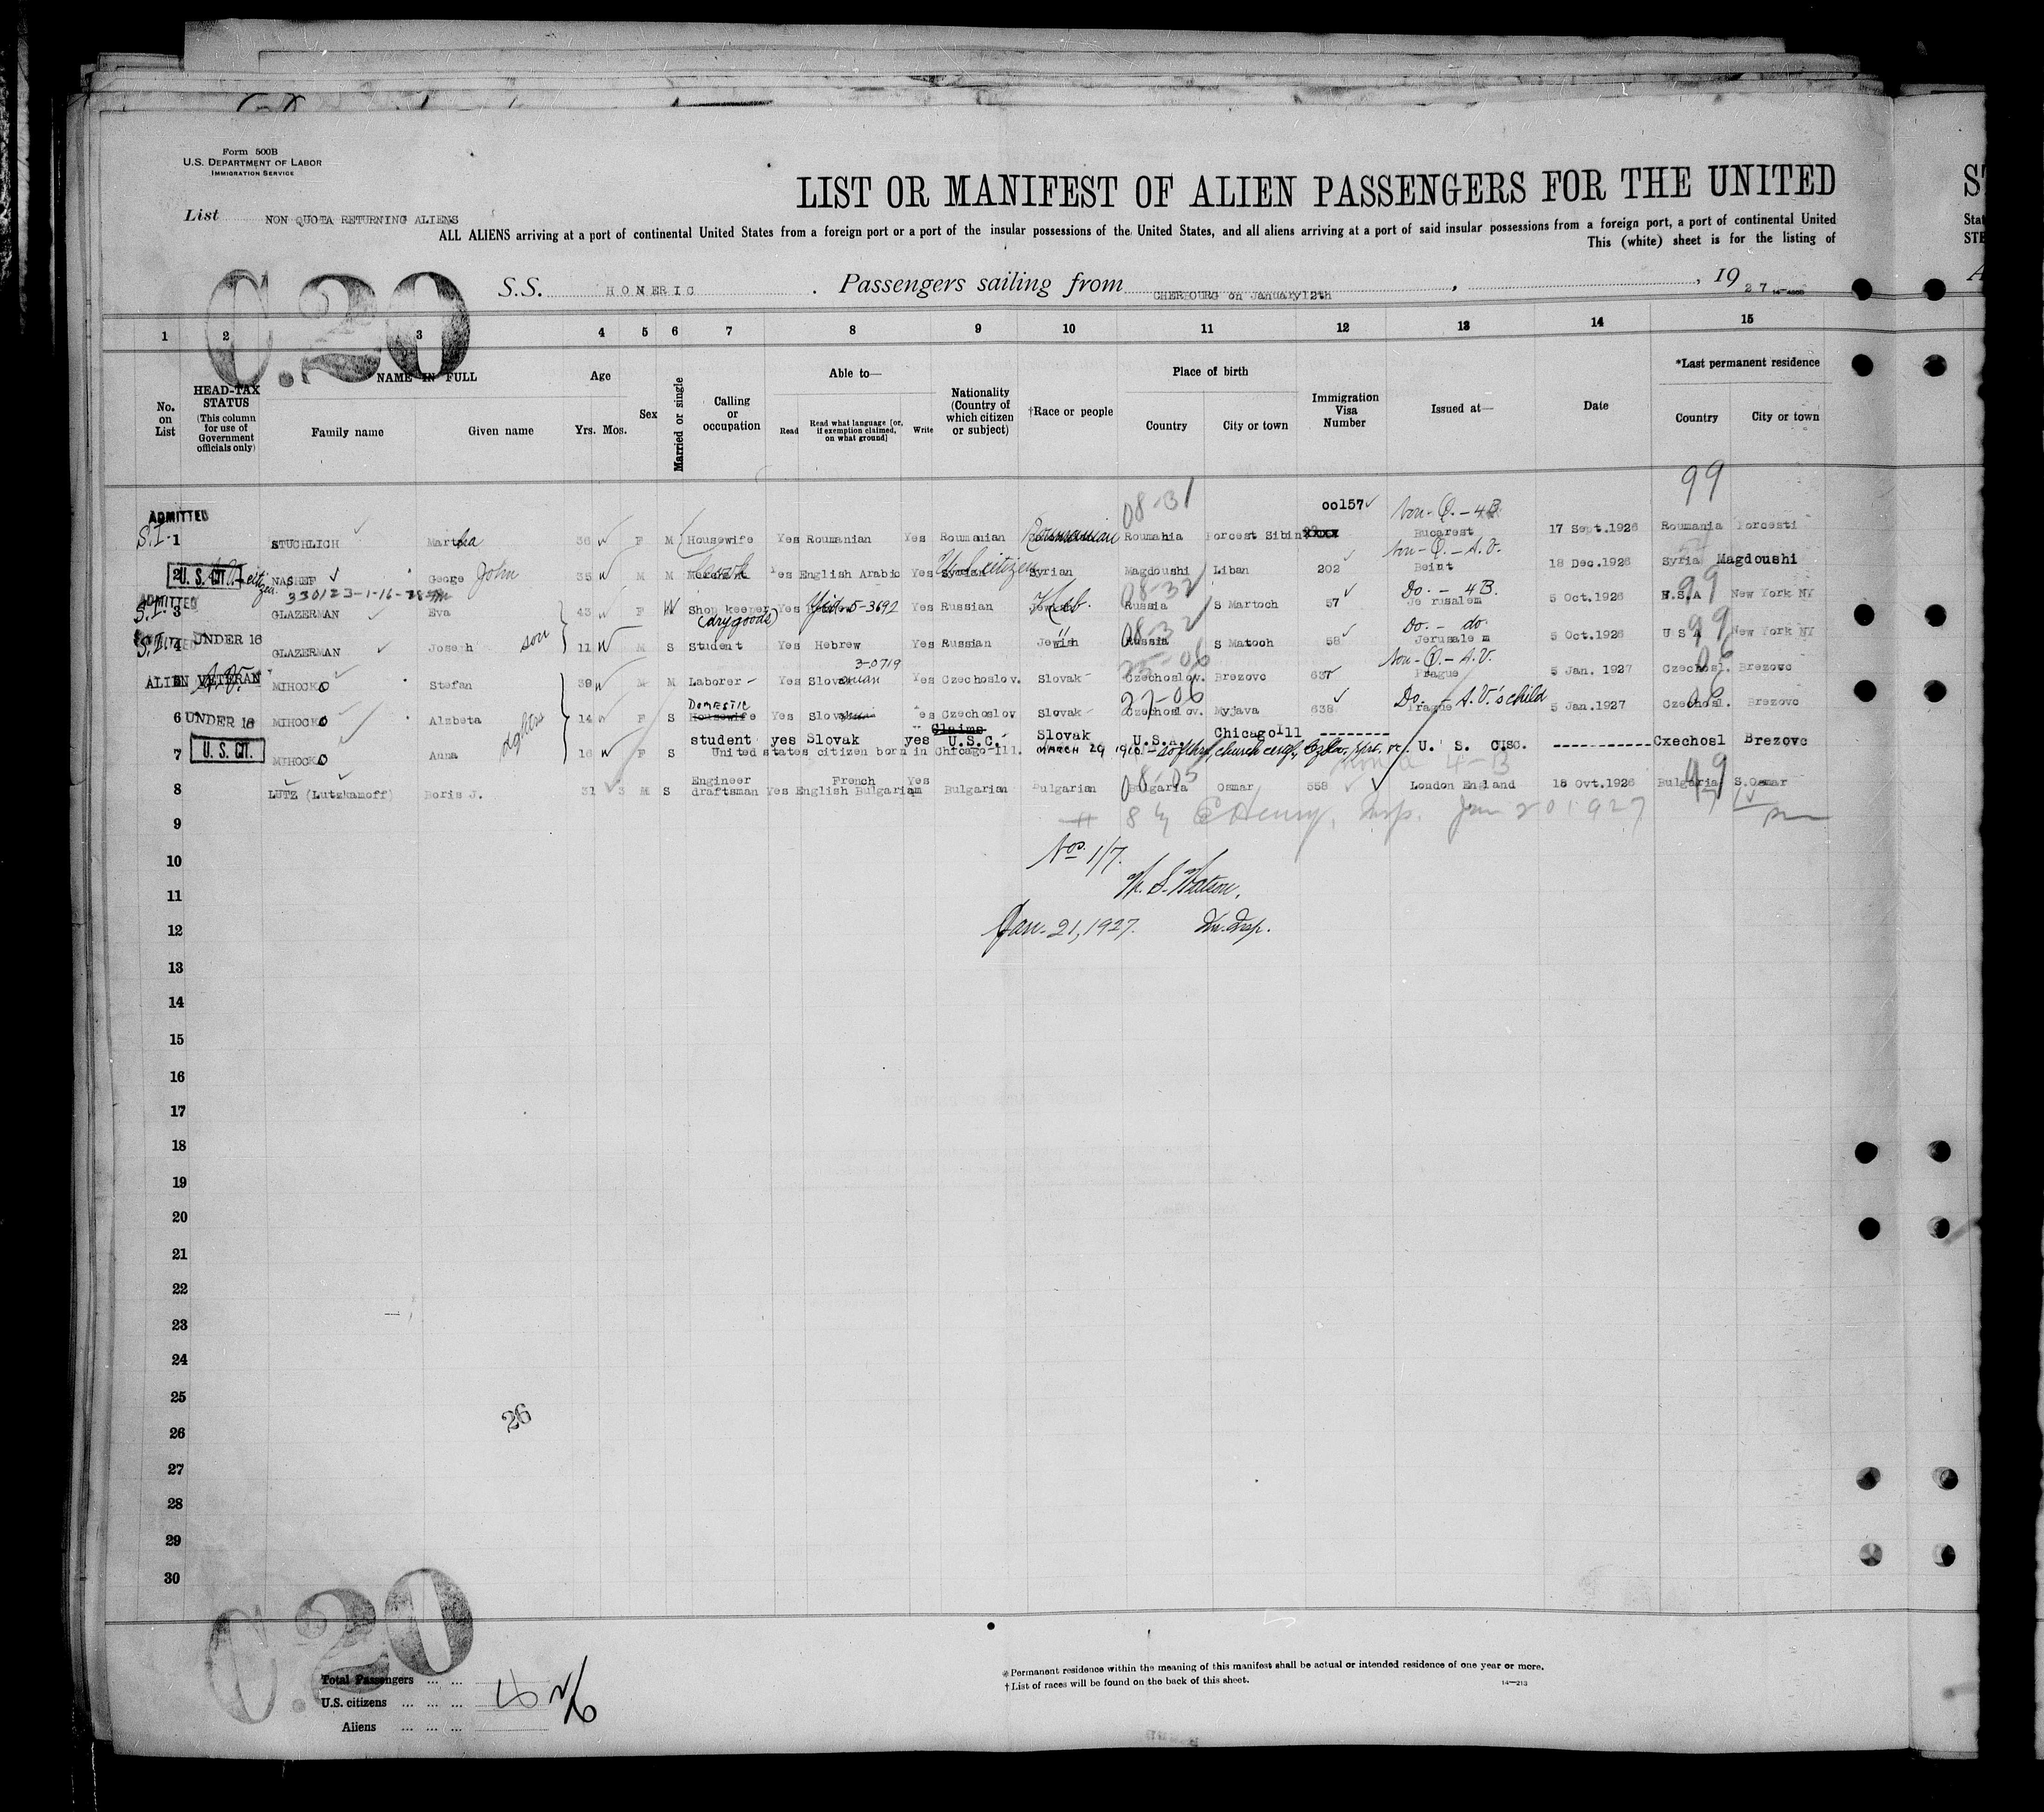 Form 500B
U.S. DEPARTMENT OF LABOR
IMMIGRATION SERVICE
LIST OR MANIFEST OF ALIEN PASSENGERS FOR THE UNITED
List NON QUOTA RETURNING ALIENS
ALL ALIENS arriving at a port of continental United States from a foreign port or a port of the insular possessions of the United States, and all aliens arriving at a port of said insular possessions from a foreign port, a port of continental United
This (white) sheet is for the listing of
C.20
S.S. HOMERIC . Passengers sailing from CHERBOURG on January 12th , , 19 27
1 2 3 4 5 6 7 8 9 10 11 12 13 14 15
No. on List
HEAD-TAX STATUS (This column for use of Government officials only)
NAME IN FULL
Family name Given name
Age
Yrs. Mos.
Sex
Married or single
Calling or occupation
Able to—
Read
Read what language [or, if exemption claimed, on what ground]
Write
Nationality (Country of which citizen or subject)
†Race or people
Place of birth
Country City or town
Immigration Visa Number
Issued at—
Date
*Last permanent residence
Country City or town
99
ADMITTED 08-31 00157 Non-Q.-4B
S.I. 1 STUCHLICH Martha 36 W F M Housewife Yes Roumanian Yes Roumanian Roumanian Roumania Porcest Sibin Bucarest 17 Sept.1926 Roumania Porcesti
Non-Q.-A.V.
2 U.S. CIT. NASHEF George John 35 W M M Merchant Yes English Arabic Yes Syrian U.S. citizen Syrian Magdoushi Liban 202 Beirut 18 Dec.1926 Syria Magdoushi
330123-1-16-28
ADMITTED 08-32 Do.- 4B. 99
S.I. 3 GLAZERMAN Eva 43 W F W Shop keeper (dry goods) Yes Yid. 5-3692 Yes Russian Heb. Russia S Martoch 57 Jerusalem 5 Oct.1926 U.S.A New York NY
08-32 Do.- do. 99
S.I. 4 UNDER 16 GLAZERMAN Joseph son 11 W M S Student Yes Hebrew Yes Russian Jewish Russia S Matoch 58 Jerusalem 5 Oct.1926 U S A New York NY
3-0719 25-06 Non-Q.-A.V. 06
ALIEN VETERAN 5 MIHOCKO Stefan 39 W M M Laborer Yes Slovak Yes Czechoslov. Slovak Czechoslov. Brezovc 637 Prague 5 Jan. 1927 Czechosl. Brezovc
DOMESTIC 27-06 Do.- A.V.'s child 06
6 UNDER 16 MIHOCKO Alzbeta dghtrs 14 W F S Housewife Yes Slovak Yes Czechoslov Slovak Czechoslov. Myjava 638 Prague 5 Jan.1927 Czechosl. Brezovc
student yes Slovak yes Claims U.S.C. Slovak U.S.a. Chicago Ill --------
7 U.S. CIT. MIHOCKO Anna 16 W F S United states citizen born in Chicago Ill. MARCH 29 1910 U. S. CISC. ----------- Cxechosl Brezovc
4-B
8 LUTZ (Lutzkamoff) Boris J. 31 3 M S Engineer draftsman Yes English French Bulgarian Yes Bulgarian Bulgarian 08-05 Bulgaria Osmar 558 London England 18 Ovt.1926 Bulgaria S.Osmar
9 # 8 by E Henry, Insp. Jan 20 1927
10 Nos. 1/7.
11 W. S. Watson,
12 Jan. 21, 1927. Im. Insp.
13
14
15
16
17
18
19
20
21
22
23
24
25
26 26
27
28
29
30
C.20
Total Passengers ... ...
U.S. citizens ... ... ...
Aliens ... ... ...
*Permanent residence within the meaning of this manifest shall be actual or intended residence of one year or more.
†List of races will be found on the back of this sheet.
14—213